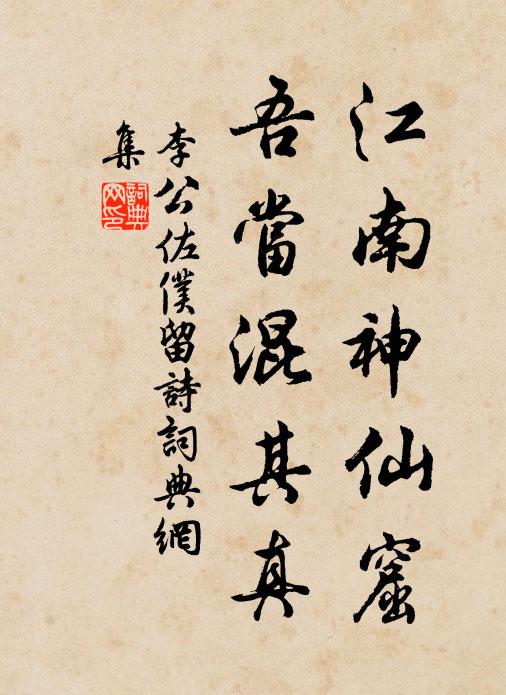 江南神仙窟
吾當混其真
李公佐僕留詩詞典網
集
詞典
网印